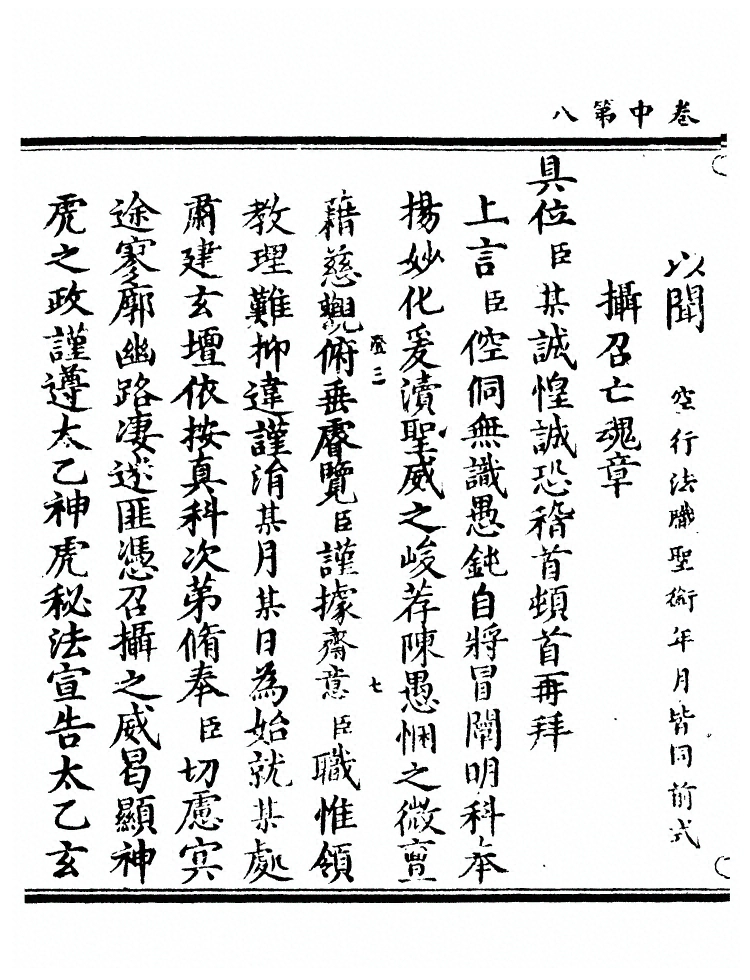 卷中第八
以聞 空行法職聖銜年月皆同前式
攝召亡魂章
具位臣某誠惶誠恐稽首頓首再拜
上言臣倥侗無識愚鈍自將冒闡明科奉
揚妙化爰瀆聖威之峻荐陳愚悃之微亶
藉慈觀俯垂睿覽臣謹據齋意臣職惟領
三 七
教理難抑違謹涓某月某日為始就某處
肅建玄壇依按真科次第脩奉臣切慮冥
途寥廓幽路凄迷匪憑召攝之威曷顯神
虎之政謹遵太乙神虎秘法宣告太乙玄